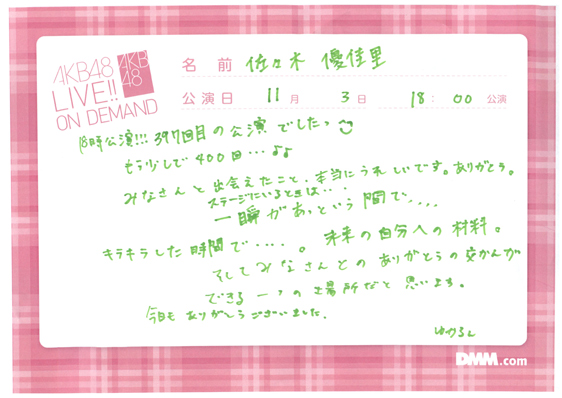 AKB48
LIVE!!
ON DEMAND
AKB
48
名 前 佐々木 優佳里
公演日 11月 3日 18:00 公演
18時公演!!! 397回目の公演でしたっ
もう少しで400回…♪♪
みなさんと出会えたこと、本当にうれしいです。ありがとう。
ステージにいるときは・・・
一瞬があっという間で.....
キラキラした時間で・・・・。未来の自分への材料。
そしてみなさんとのありがとうの交かんが
できる一つの場所だと思います。
今日もありがとうございました。
ゆかるん
DMM.com